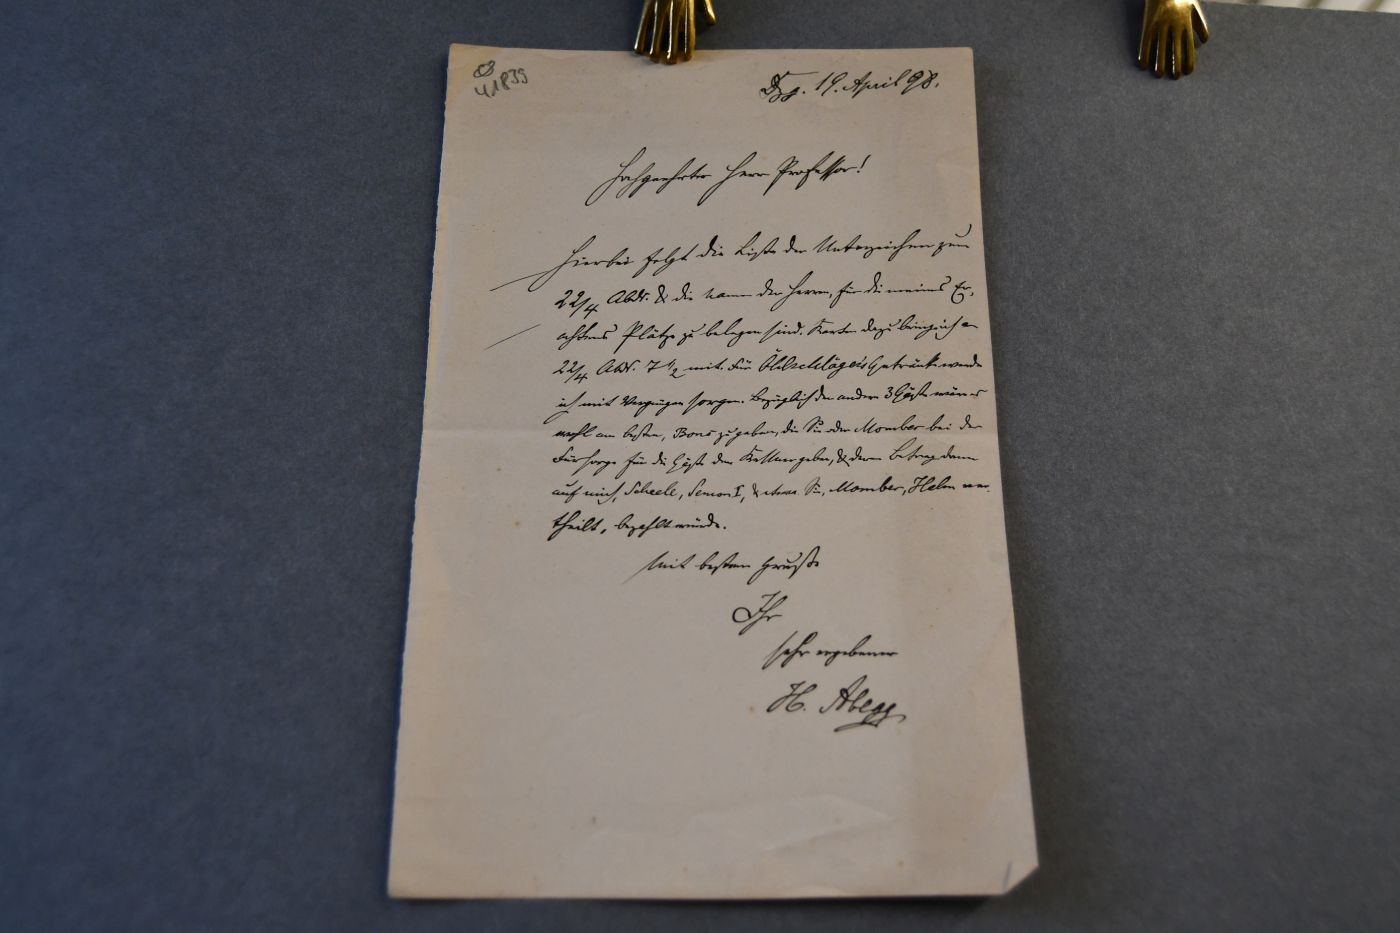 41839
Dzg. 19. April 98.
Hochgeehrter Herr Professor!
Hierbei folgt die Liste der Unterzeichner zum
22/4 Abds. & die Namen der Herren, für die meines Er-
achtens Plätze zu belegen sind. Karten dazu bringe ich
22/4 Abds. 7 1/2 mit. Für Getränke werde
ich mit Vergnügen sorgen. Bezüglich der andern 3 Gäste wäre es
wohl am besten, Bons zu geben, die Sie oder Momber bei der
Fürsorge für die Gäste dem Kellner geben, & deren Betrag dann
auf mich, Scheele, Semon, & etwa Sie, Momber, Helm ver-
theilt, bezahlt würde.
Mit bestem Gruße
Ihr
sehr ergebener
H. Abegg